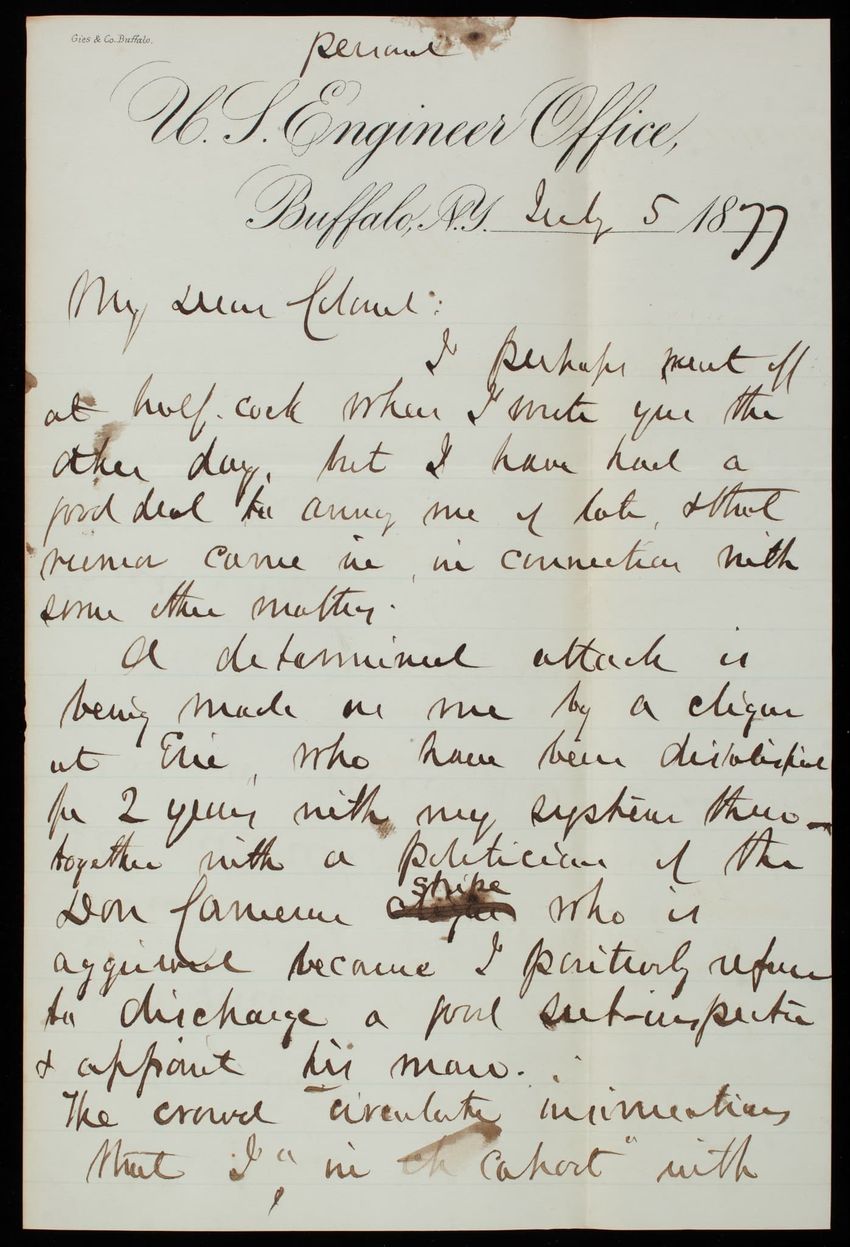 Gies & Co. Buffalo.
personal
U. S. Engineer Office,
Buffalo, N.Y. July 5 1877
My Dear Colonel:
I perhaps went off
at half-cock when I wrote you the
other day, but I have had a
good deal to annoy me of late, & that
rumor came in, in connection with
some other matters.
A determined attack is
being made on me by a clique
at Erie, who have been dissatisfied
for 2 years with my system there -
together with a politician of the
Don Cameron stripe who is
aggrieved because I positively refuse
to discharge a good sub-inspector
& appoint his man.
The crowd circulate insinuations
that I "in cahort" with